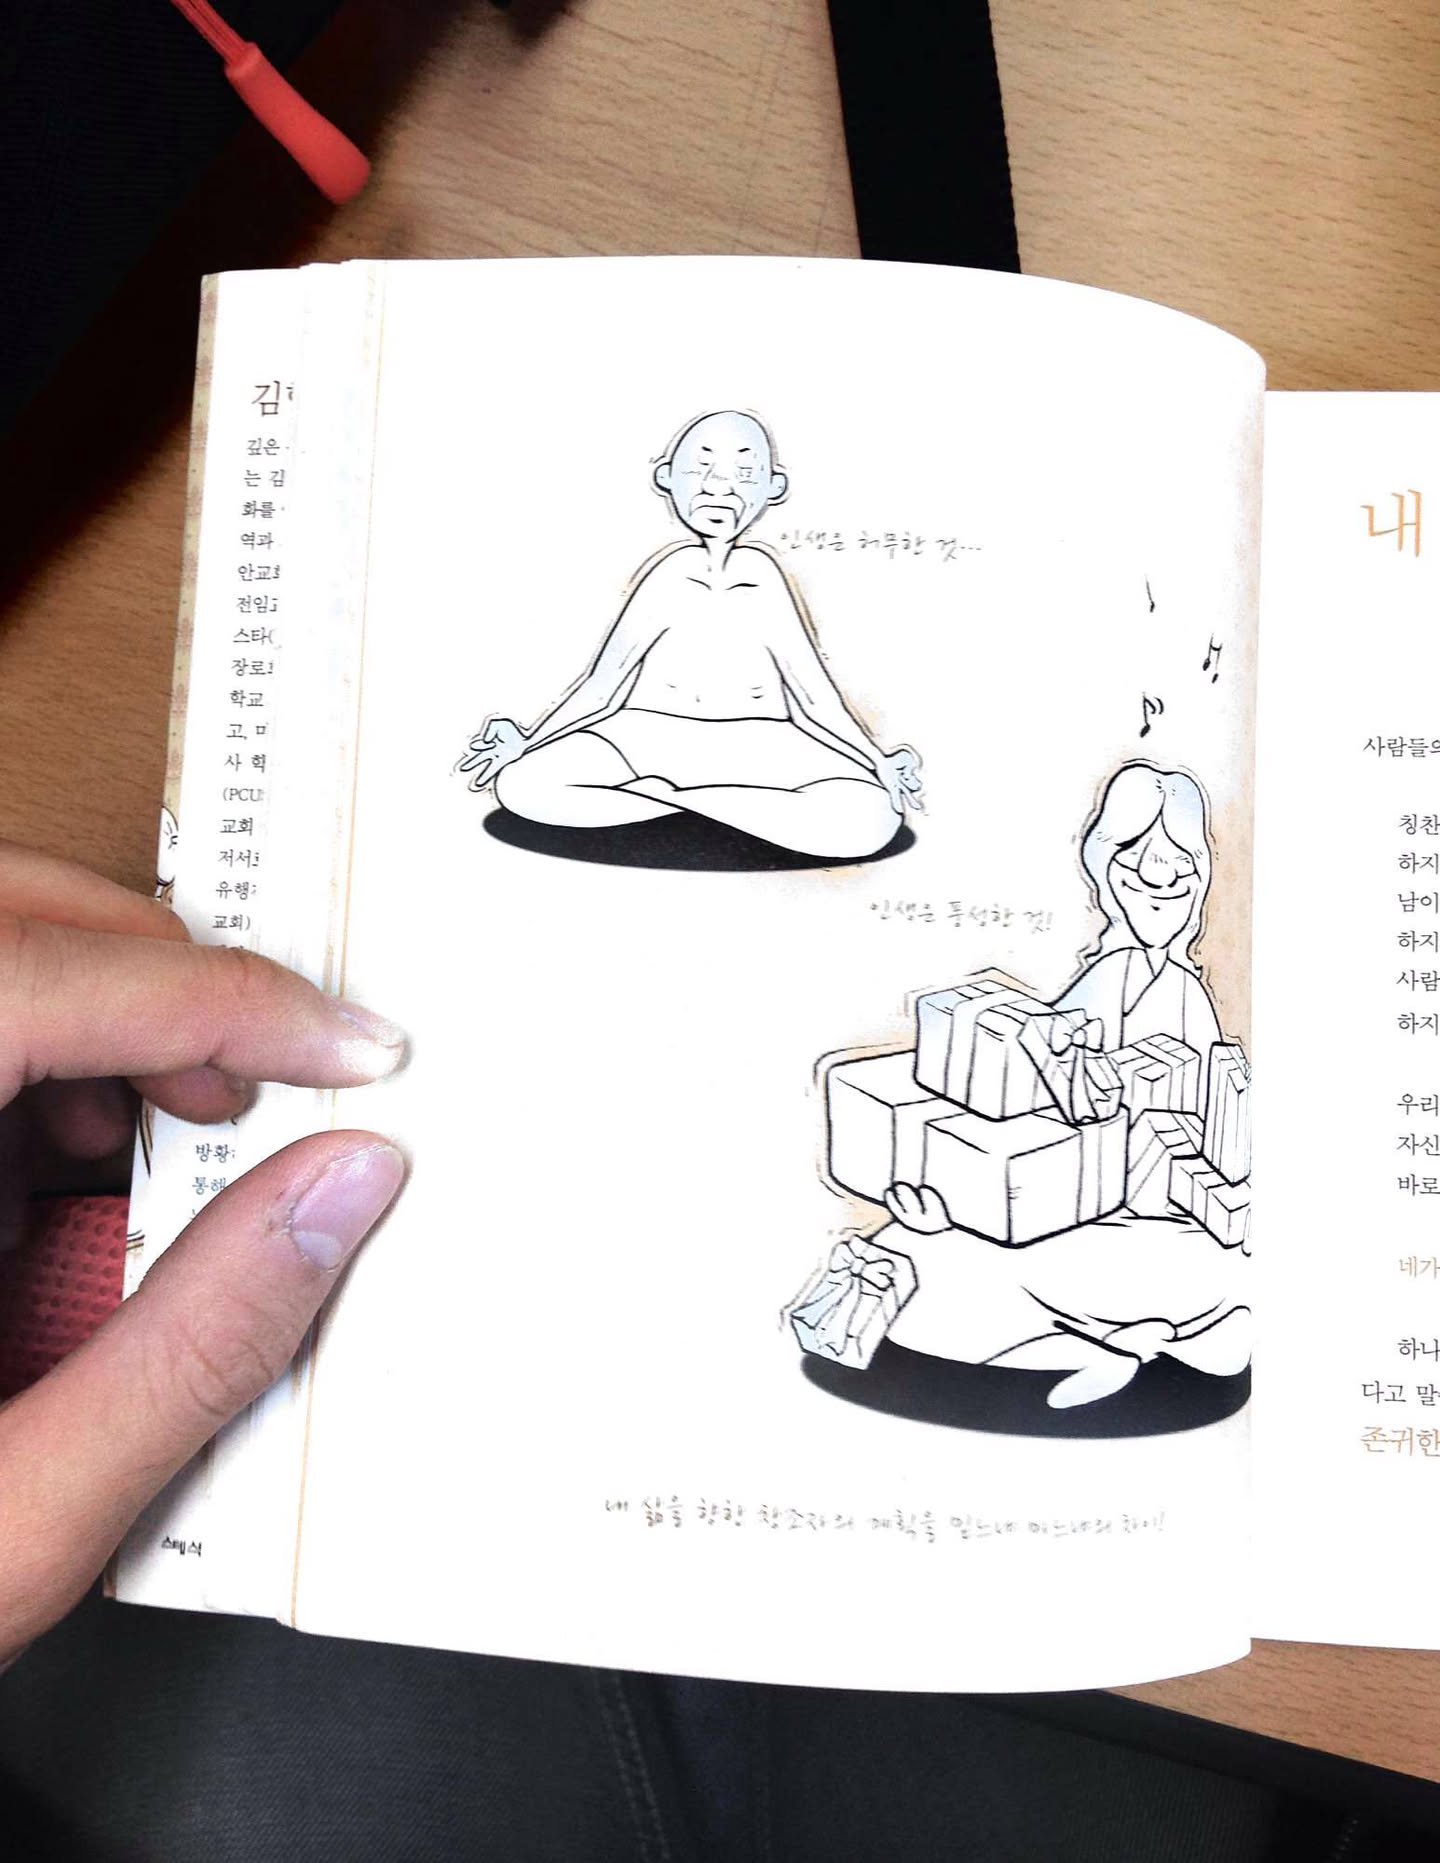 김
깊은
는 김
화를
역과
안교회
전임교
스타(
장로회
학교
고, 미
사 학
(PCUS
교회
저서로
유행
교회)
방황
통해
스텝 식
인생은 허무한 것...
인생은 풍성한 것!
내 삶을 향한 창조자의 계획을 믿느냐 마느냐의 차이!
내
사람들의
칭찬
하지
남이
하지
사람
하지
우리
자신
바로
네가
하나
다고 말
존귀한